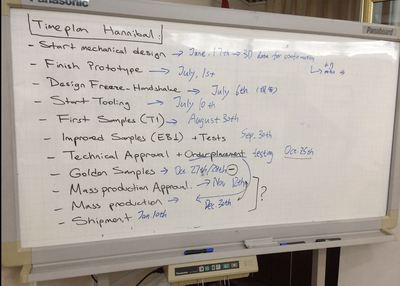 Panasonic
Panaboard
Timeplan Hannibal:
- Start mechanical design → June 17th → 3D data for confirmation
- Finish Prototype → July, 1st
- Design Freeze - Handshake → July 6th
- Start Tooling → July 10th
- First Samples (T1) → August 30th
- Improved Samples (EB1) + Tests Sep. 30th
- Technical Approval + Orderplacement testing Oct. 25th
- Golden Samples → Oct. 27th/28th
- Mass production Approval → Nov 12th
- Mass production → Dec 30th
?
- Shipment Jan. 10th
Panasonic